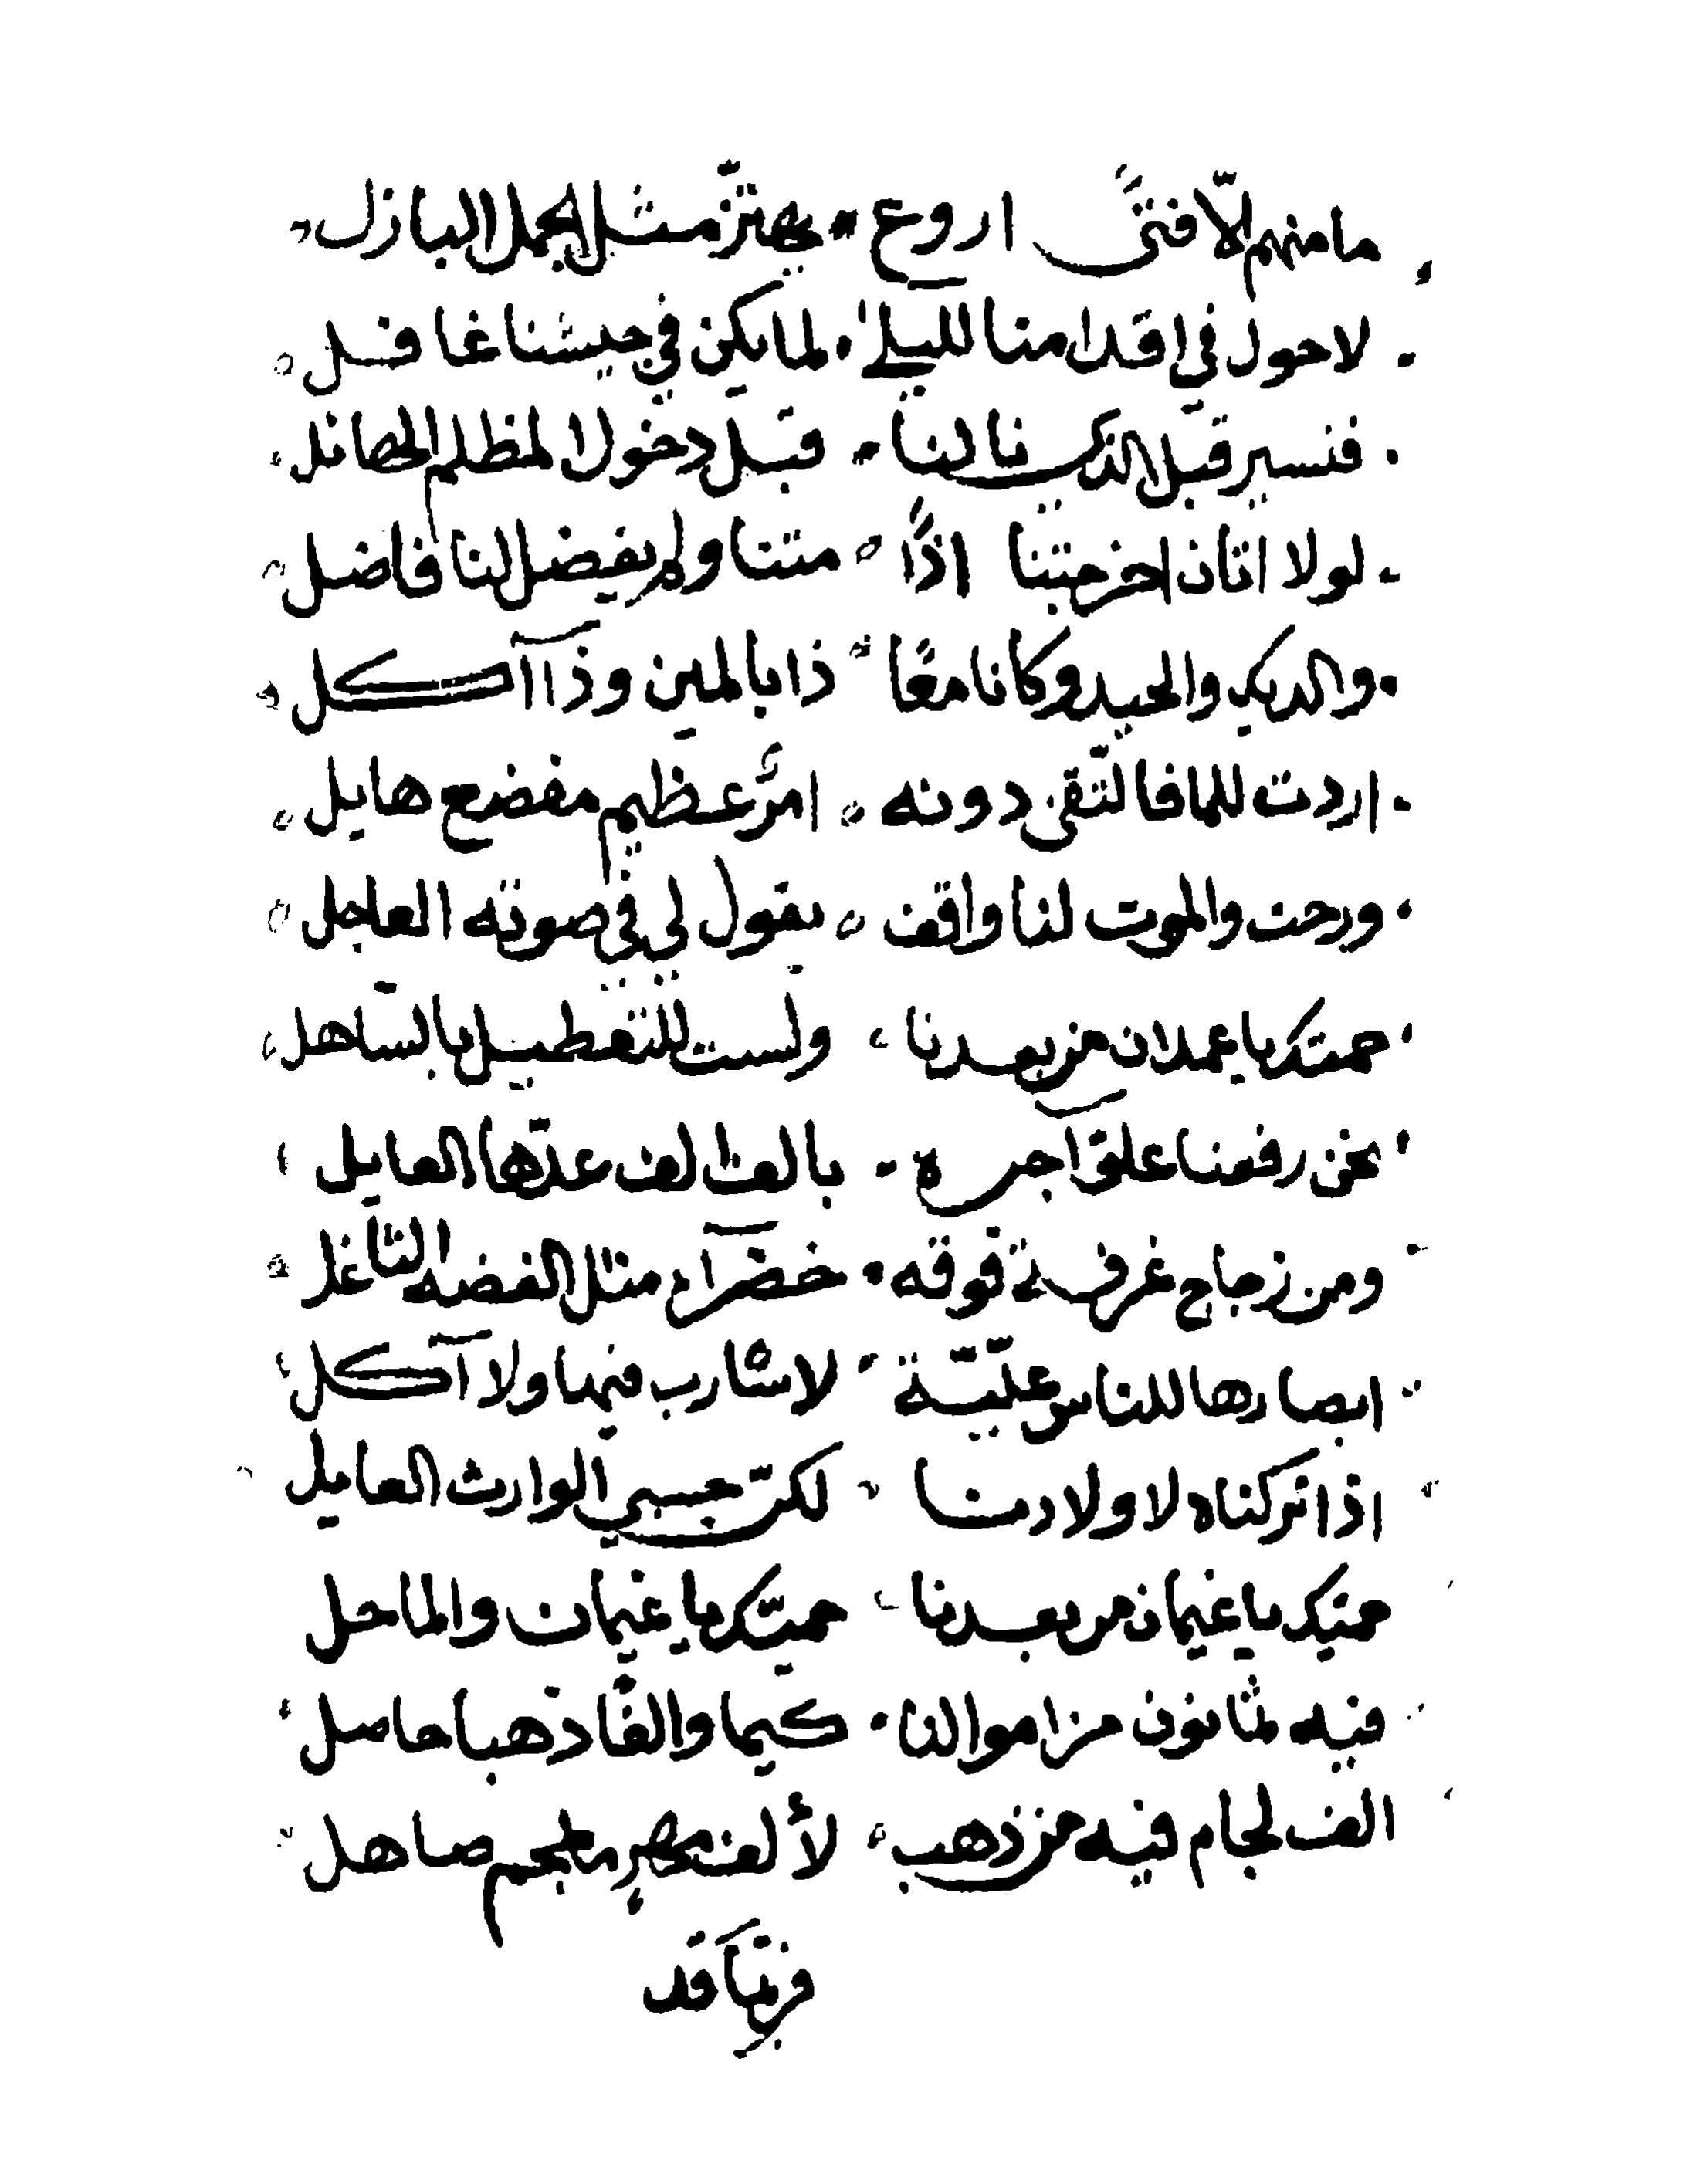 ما منهم الّا فتىً اروع يهتزّ مثل الجمل البازل
لا حول في اقدامنا لليلى لما يكن في جيشنا غافل
فنسير قبل الذكر نالنا قبل دخول المظلم الهائل
لولا اتان اخرجتنا اذًا متنا ولم يفضل لنا فاضل
والديك والحيد وكانا معًا ذا بالمين وذا آكل
اردت للما فالتقى دونه امرٌ عظيم مفضع هايل
ورحت والموت لنا واقف يقول لي في صوته العاجل
حمتك يا عملان من بعدنا ولست للتعطيل بالساهل
نحن رفعنا علو آجرة بالف الف عدّها العايل
ومن زجاج غرفة فوقه خضراء مثل الفضه الثاغل
ابصارها للناس عليّة لا شارب فيها ولا آكل
اذا تركناه لاولادنا لكنّ حبسي الوارث العايل
حمتك يا غيمان من بعدنا حميتك يا غيمان والماحل
فيه ثمانون من اموالنا كيما والفًا ذهبا حاصل
الف لجام فيه من ذهب لألف مهرٍ ملجم صاهل
وربّما قد